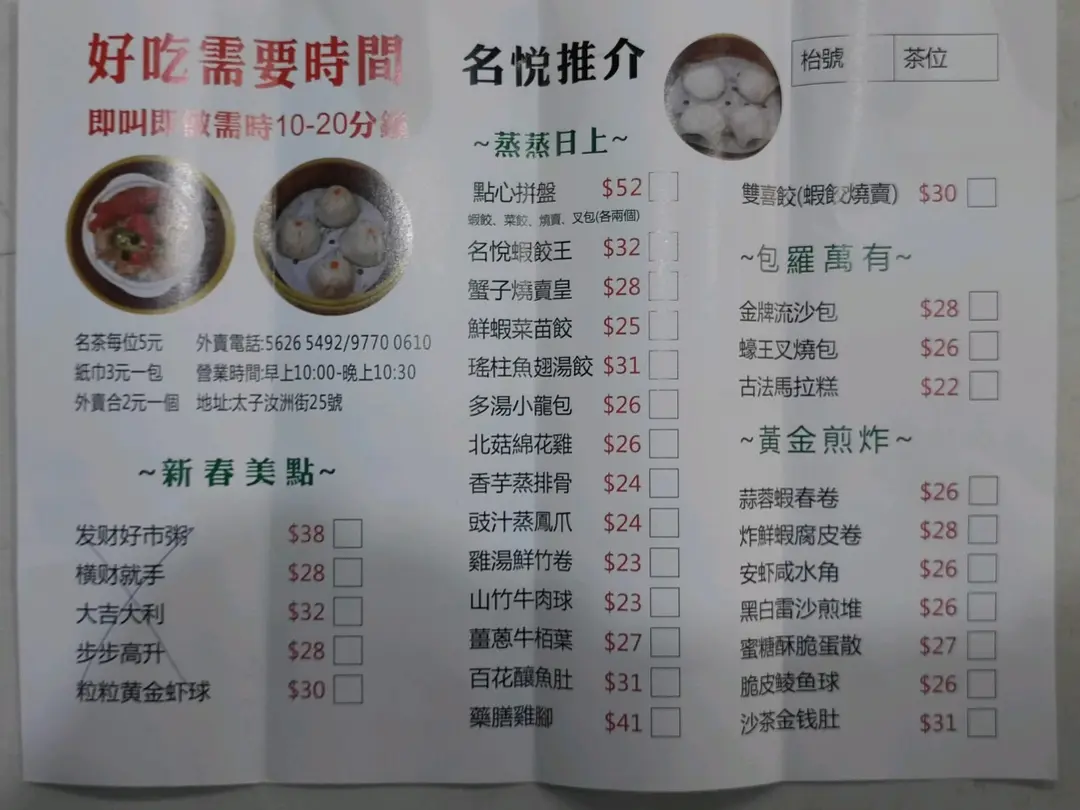 好吃需要時間
即叫即做需時10-20分鐘
名茶每位5元 外賣電話:5626 5492/9770 0610
紙巾3元一包 營業時間:早上10:00-晚上10:30
外賣合2元一個 地址:太子汝洲街25號
~新春美點~
发财好市粥 $38
横财就手 $28
大吉大利 $32
步步高升 $28
粒粒黄金虾球 $30
名悦推介
~蒸蒸日上~
點心拼盤 $52
蝦餃、菜餃、燒賣、叉包(各兩個)
名悅蝦餃王 $32
蟹子燒賣皇 $28
鮮蝦菜苗餃 $25
瑤柱魚翅湯餃 $31
多湯小龍包 $26
北菇綿花雞 $26
香芋蒸排骨 $24
豉汁蒸鳳爪 $24
雞湯鮮竹卷 $23
山竹牛肉球 $23
薑蔥牛栢葉 $27
百花釀魚肚 $31
藥膳雞腳 $41
枱號 茶位
雙喜餃(蝦餃燒賣) $30
~包羅萬有~
金牌流沙包 $28
蠔王叉燒包 $26
古法馬拉糕 $22
~黃金煎炸~
蒜蓉蝦春卷 $26
炸鮮蝦腐皮卷 $28
安虾咸水角 $26
黑白雷沙煎堆 $26
蜜糖酥脆蛋散 $27
脆皮鲮鱼球 $26
沙茶金钱肚 $31